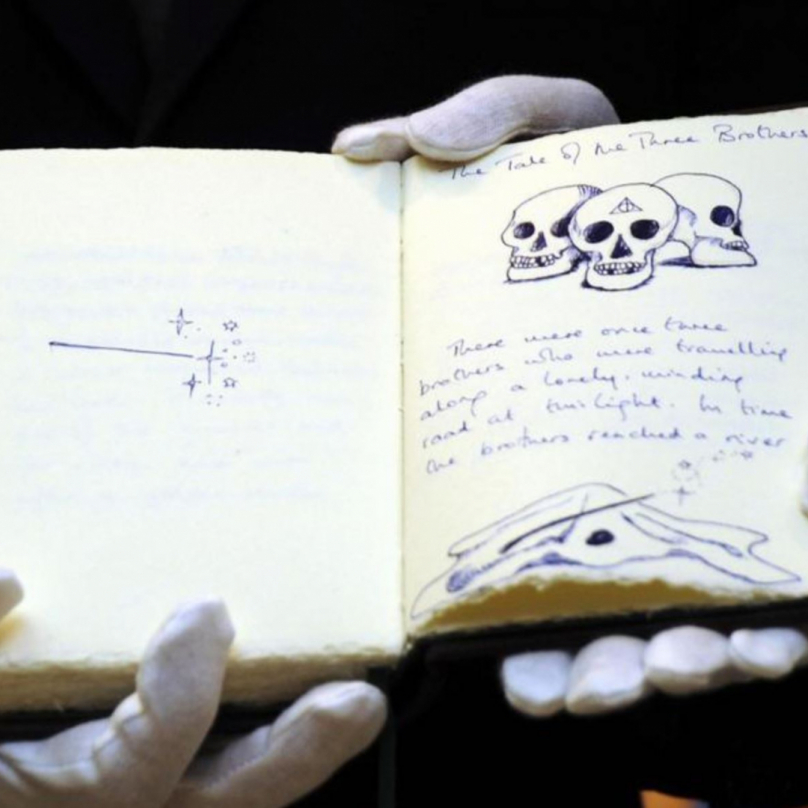 The Tale of the Three Brothers
There were once three
brothers who were travelling
along a lonely, winding
road at twilight. In time
the brothers reached a river